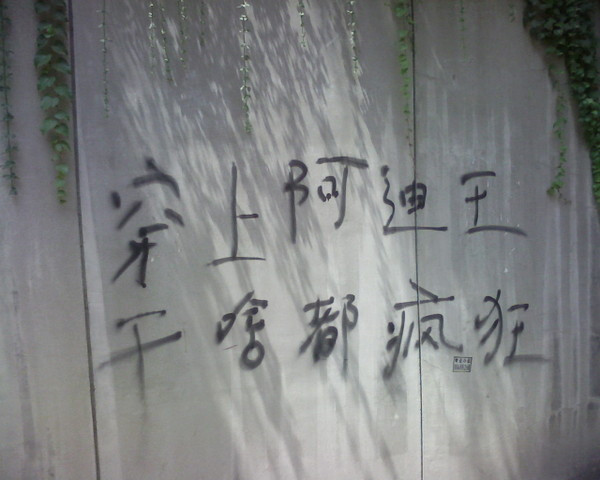 穿上阿迪王
干啥都疯狂